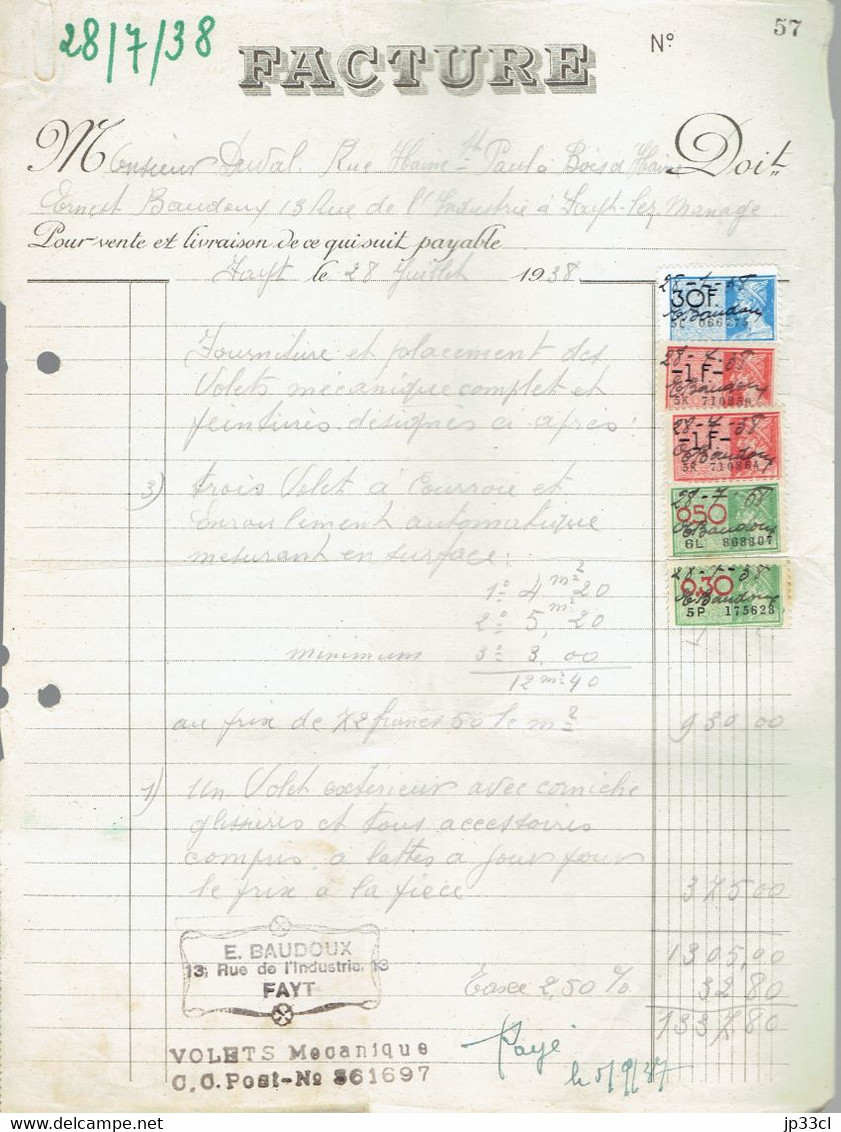 28/7/38
FACTURE
N° 57
Monsieur Duval. Rue Haine St Paul à Bois d Haine Doit
Ernest Baudoux 13 Rue de l'Industrie à Fayt-lez Manage
Pour vente et livraison de ce qui suit payable
Fayt le 28 Juillet 1938
30F.
E Baudoux
28-7-38
-1F-
E Baudoux
5R 71085A
28-7-38
-1F-
E Baudoux
5R 71086A
28-7-38
0,50
E Baudoux
6L 868807
28-7-38
0,30
E Baudoux
5P 175628
Fourniture et placement des
Volets mécanique complet et
peintures désignés ci après :
3) trois Volet à Courroie et
Enroulement automatique
mesurant en surface :
1° 4 m² 20
2° 5, m² 20
minimum 3° 3,00
12 m² 40
au prix de 72 francs 50 le m² 930,00
1) Un Volet extérieur avec corniche
glissières et tous accessoires
compris à lattes a jour pour
le prix à la pièce 375,00
1305,00
Taxe 2,50 % 32 80
1337,80
E. BAUDOUX
13, Rue de l'Industrie, 13
FAYT
VOLETS Mecanique
C.C.Post-No 361697
Payé
le 5/9/37